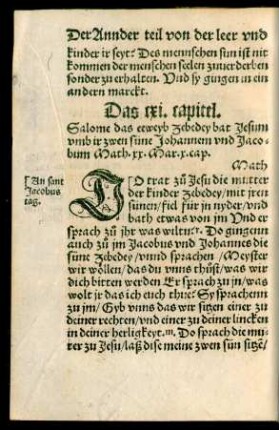 Der Annder teil von der leer vnd
kinder ir seyt? Des mennschen sun ist nit
kommen der menschen seelen zuuerderben
sonder zu erhalten. Vnd sy gingen in ein
andern marckt.
Das cxi. capitel.
Salome das eeweyb Zebedey bat Jesum
vmb ir zwen süne Johannem vnd Jaco-
bum Math. xx. Mar. x. cap.
Math
An sant
Jacobus
tag.
DO trat zů Jesu die mutter
der kinder Zebedey / mit jren
sünen / fiel für jn nyder / vnd
bath etwas von jm Vnd er
sprach zů jhr was wiltu. Do gingenn
auch zů jm Jacobus vnd Johannes die
süne Zebedey / vnnd sprachen / Meyster
wir wöllen / das du vnns thüst / was wir
dich bitten werden Er sprach zu jn / was
wolt jr das ich euch thue? Sy sprachenn
zu jm / Gyb vnns das wir sitzen einer zu
deiner rechten / vnd einer zu deiner lincken
in deiner herligkeyt. Do sprach die mu-
ter zu Jesu / laß dise meine zwen sün sitzē /